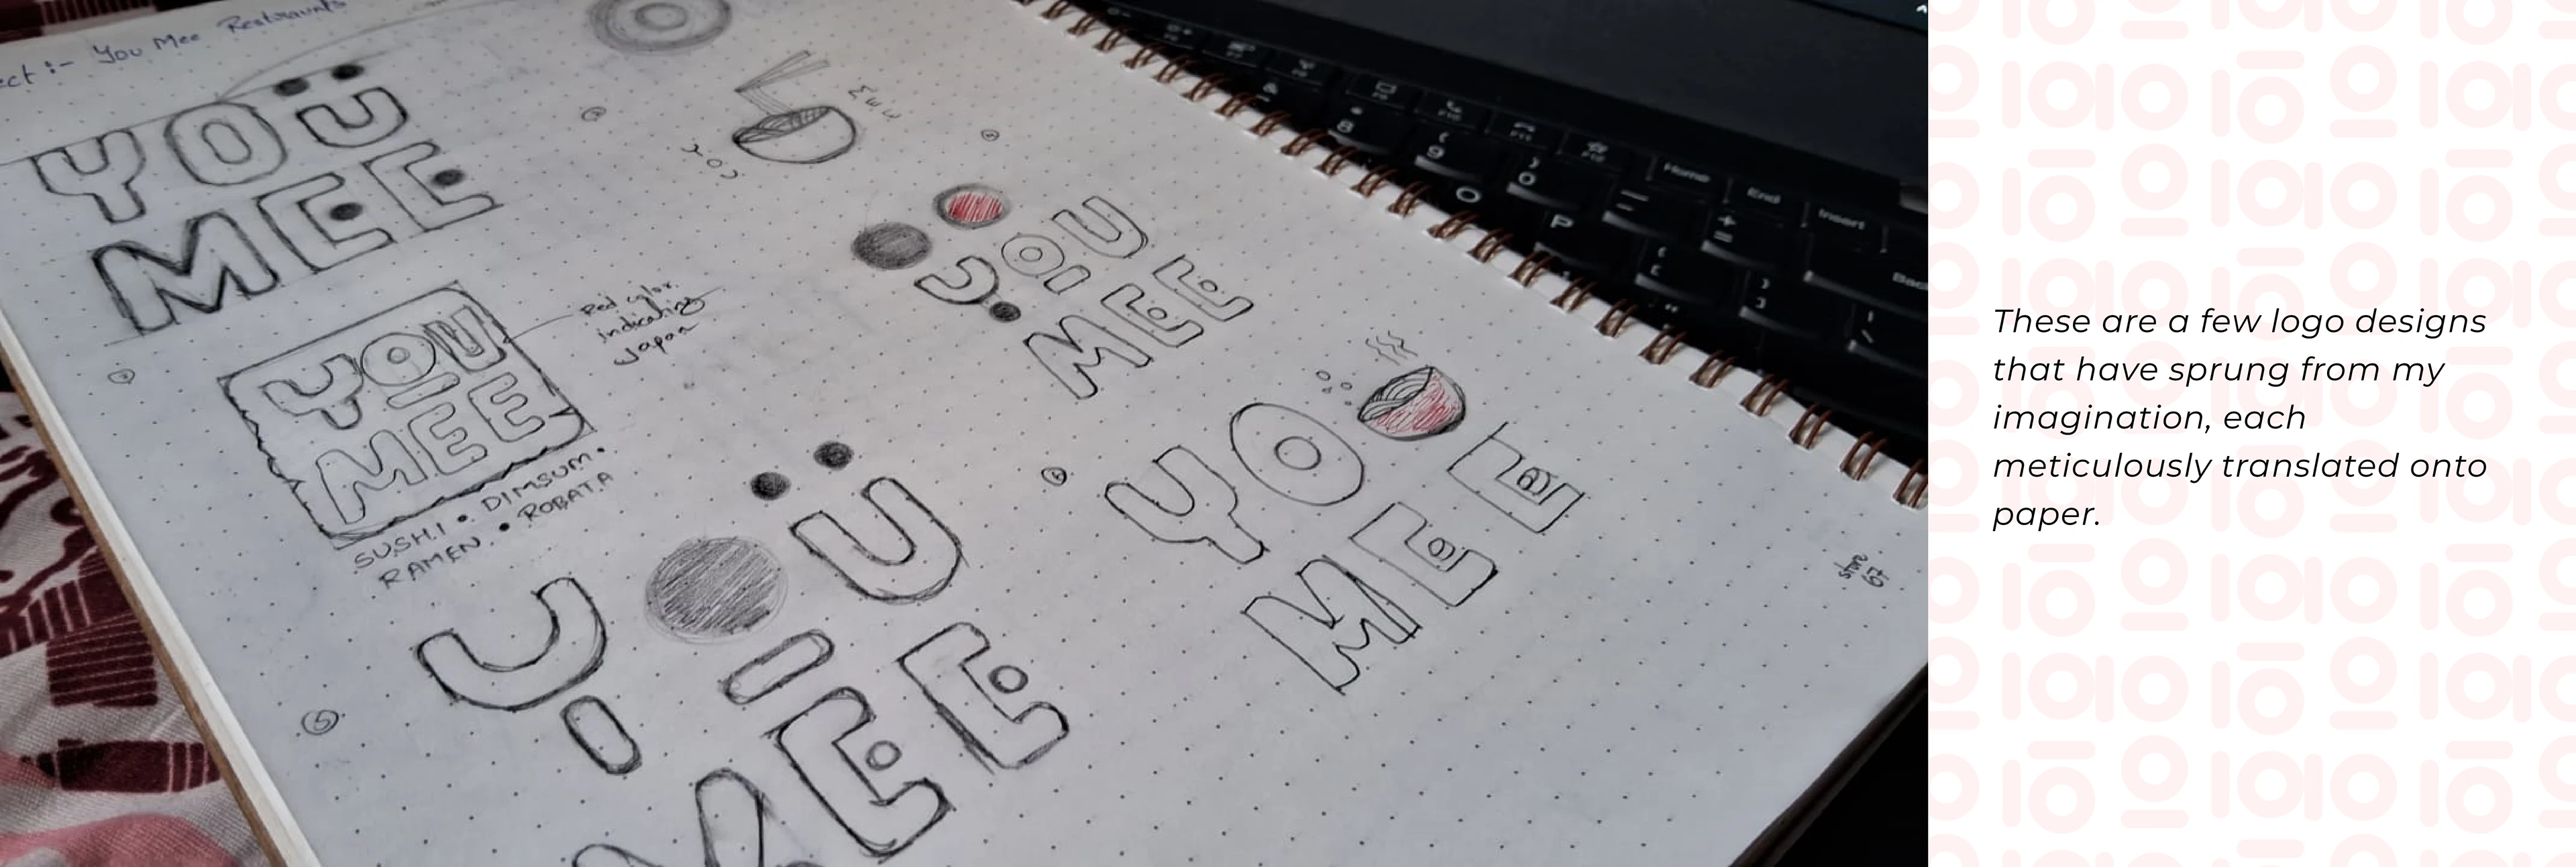 ect :- You Mee Restraunts
YOU
MEE
YOU
MEE
YOU
MEE
YOU
MEE
SUSHI • DIMSUM •
RAMEN • ROBATA
Red color
indicating
Japan
YOU
MEE
5
YO
MEE
store
67
8
9
0
O
P
Home
End
Insert
These are a few logo designs
that have sprung from my
imagination, each
meticulously translated onto
paper.